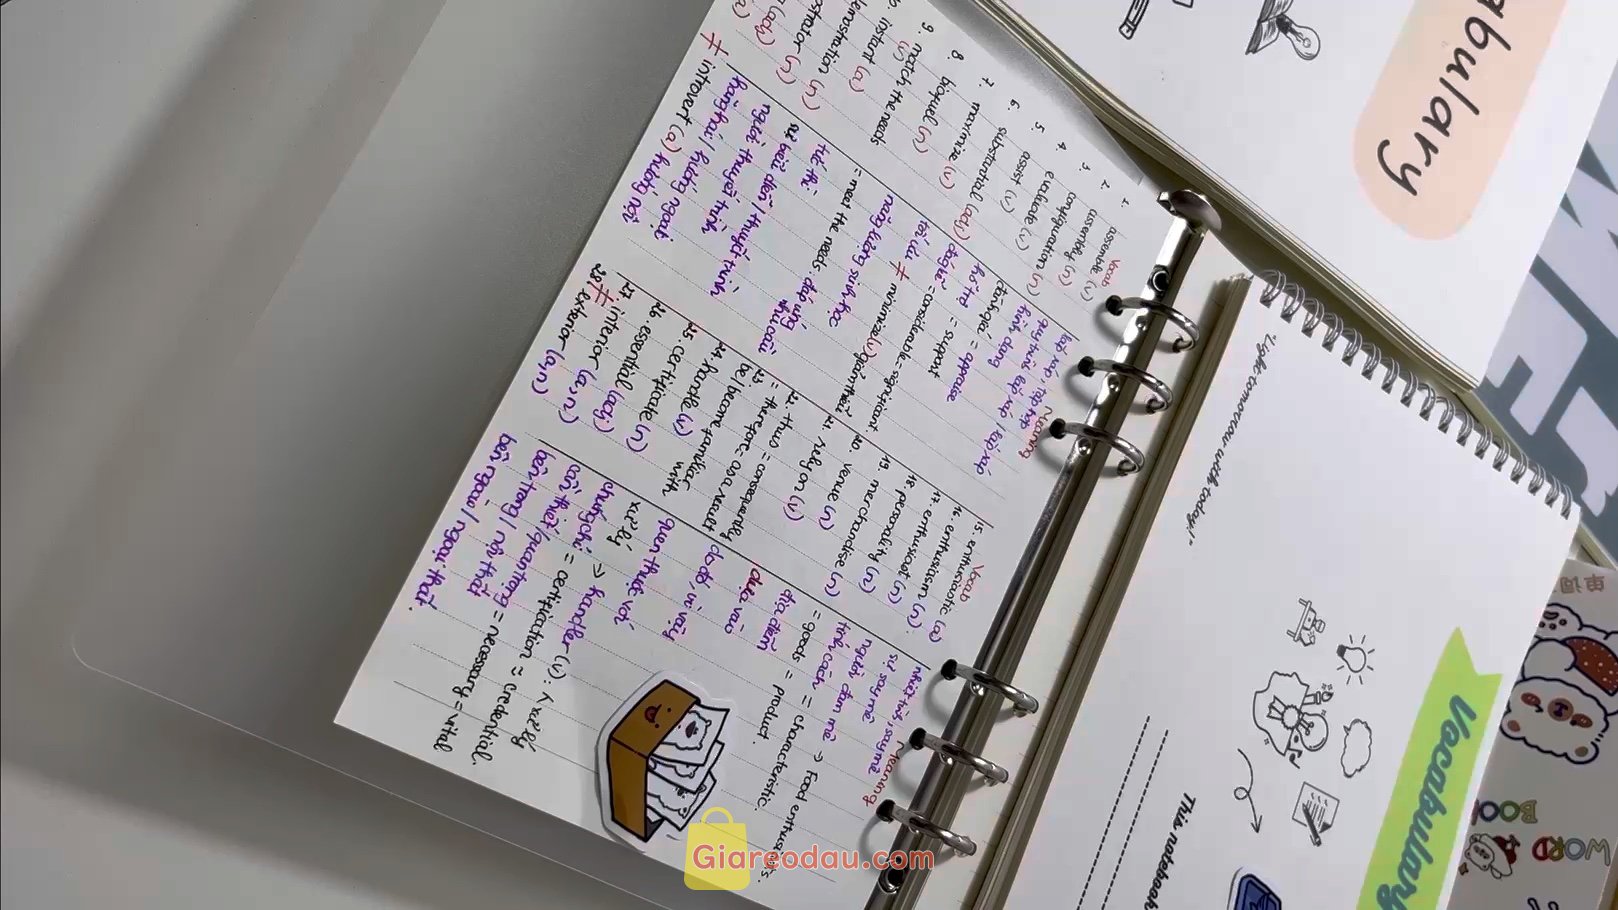 Vocab
Meaning
1. assemble (v)
lắp ráp, tập hợp
2. assembly (n)
quy trình lắp ráp / lắp ráp
3. configuration (n)
hình dạng
4. evaluate (v)
đánh giá = appraise
5. assist (v)
hỗ trợ = support
6. substantial (adj)
đáng kể = considerable = significant
7. maximize (v)
tối ưu
≠ minimize (v) giảm thiểu
8. biofuel (n)
năng lượng sinh học
9. match the needs
= meet the needs: đáp ứng
nhu cầu
instant (a)
tức thì
(n)
sự biểu diễn / thuyết trình
(n)
người thuyết trình
hướng ngoại
≠ introvert (a) hướng nội
Vocab
Meaning
15. enthusiastic (a)
nhiệt tình, say mê
16. enthusiasm (n)
sự say mê
17. enthusiast (n)
người đam mê => Food enthusiasts.
18. personality (n)
tính cách = characteristic.
19. merchandise (n)
= goods = product.
20. venue (n)
địa điểm
21. rely on (v)
dựa vào
22. thus = consequently
= therefore = as a result
do đó, vì vậy
23. be/become familiar with
quen thuộc với
24. handle (v)
xử lý => handler (n): xử lý
25. certificate (n)
chứng chỉ = certification = credential.
26. essential (adj)
cần thiết/quan trọng = necessary = vital
27. interior (a,n)
bên trong / nội thất
≠
28. exterior (a,n)
bên ngoài / ngoại thất.
bulary
"Light tomorrow with today!"
This notebook
Vocabulary
WORD
BOOK
Giareodau.com